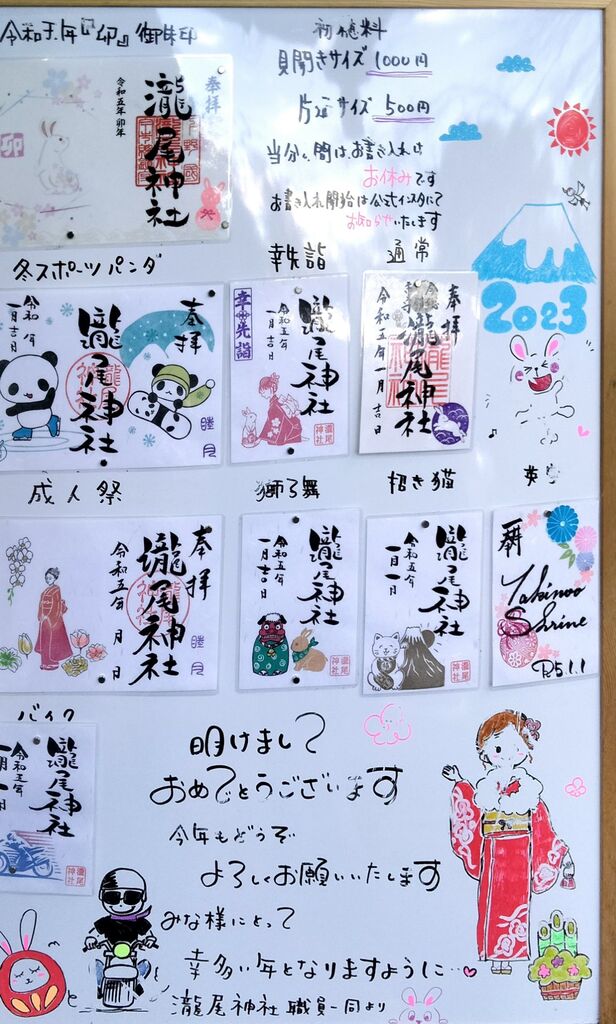 令和五年『卯』御朱印
初穂料
見開きサイズ 1000円
片面サイズ 500円
当分の間は、お書き入れは
お休みです
お書き入れ開始は公式インスタにて
お知らせいたします
奉拝
瀧尾神社
令和五年 卯年
卯
2023
冬スポーツパンダ
幸先詣
通常
奉拝
瀧尾神社
一月吉日
睦月
幸先詣
瀧尾神社
令和五年
一月吉日
奉拝
瀧尾神社
令和五年一月吉日
成人祭
獅子舞
招き猫
英字
奉拝
瀧尾神社
令和五年 月 日
睦月
瀧尾神社
令和五年
一月吉日
瀧尾神社
令和五年
一月一日
Takinoo
Shrine
R5.1.1
バイク
瀧尾神社
令和五年
明けまして
おめでとうございます
今年もどうぞ
よろしくお願いいたします
みな様にとって
幸多い年となりますように…
瀧尾神社 職員一同より